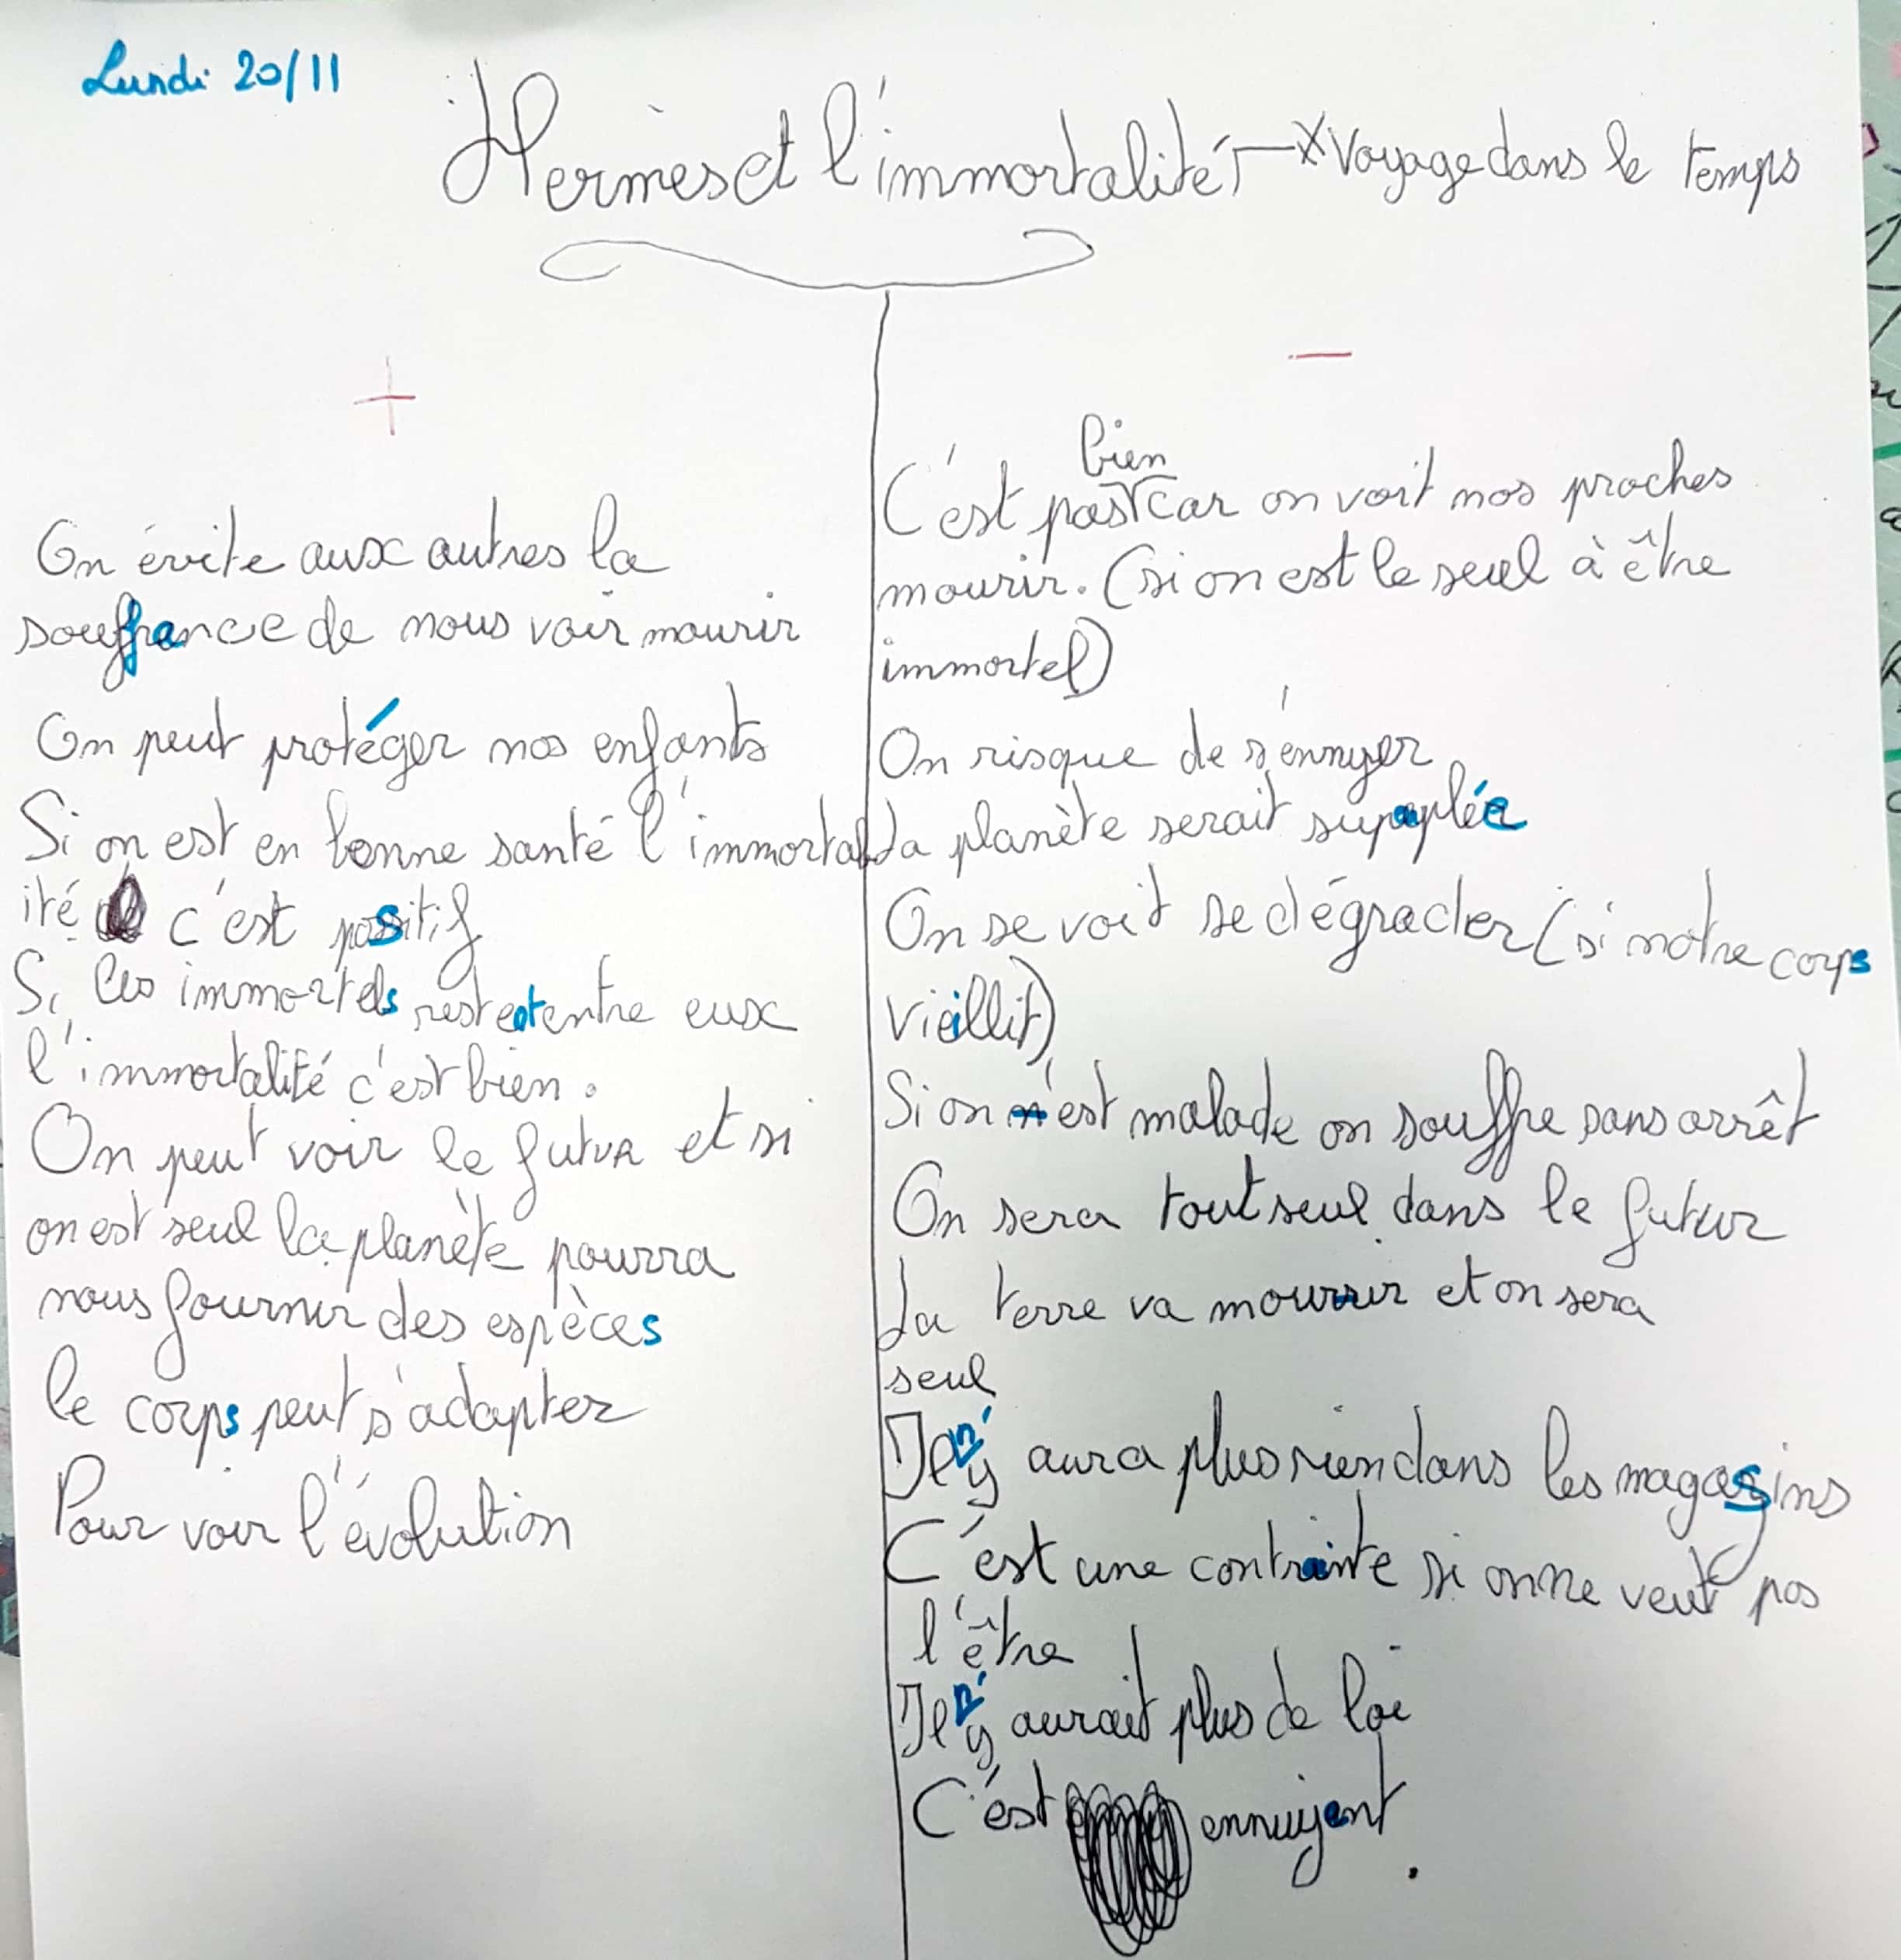 Lundi 20/11
Hermès et l'immortalité → Voyage dans le temps
+
On évite aux autres la
souffrance de nous voir mourir
On peut protéger nos enfants
Si on est en bonne santé l'immortal
ité c'est positif
Si les immortels restent entre eux
l'immortalité c'est bien.
On peut voir le futur et si
on est seul la planète pourra
nous fournir des espèces
le corps peut s'adapter
Pour voir l'évolution
-
bien
C'est pas car on voit nos proches
mourir. (si on est le seul à être
immortel)
On risque de s'ennuyer
La planète serait
On se voit se dégrader (si notre corps
vieillit)
Si on est malade on souffre sans arrêt
On sera tout seul dans le futur
La terre va mourir et on sera
seul
Il n'y aura plus rien dans les magasins
C'est une contrainte si on ne veut pas
l'être
Il n'y aurait plus de loi
C'est ennuyant.